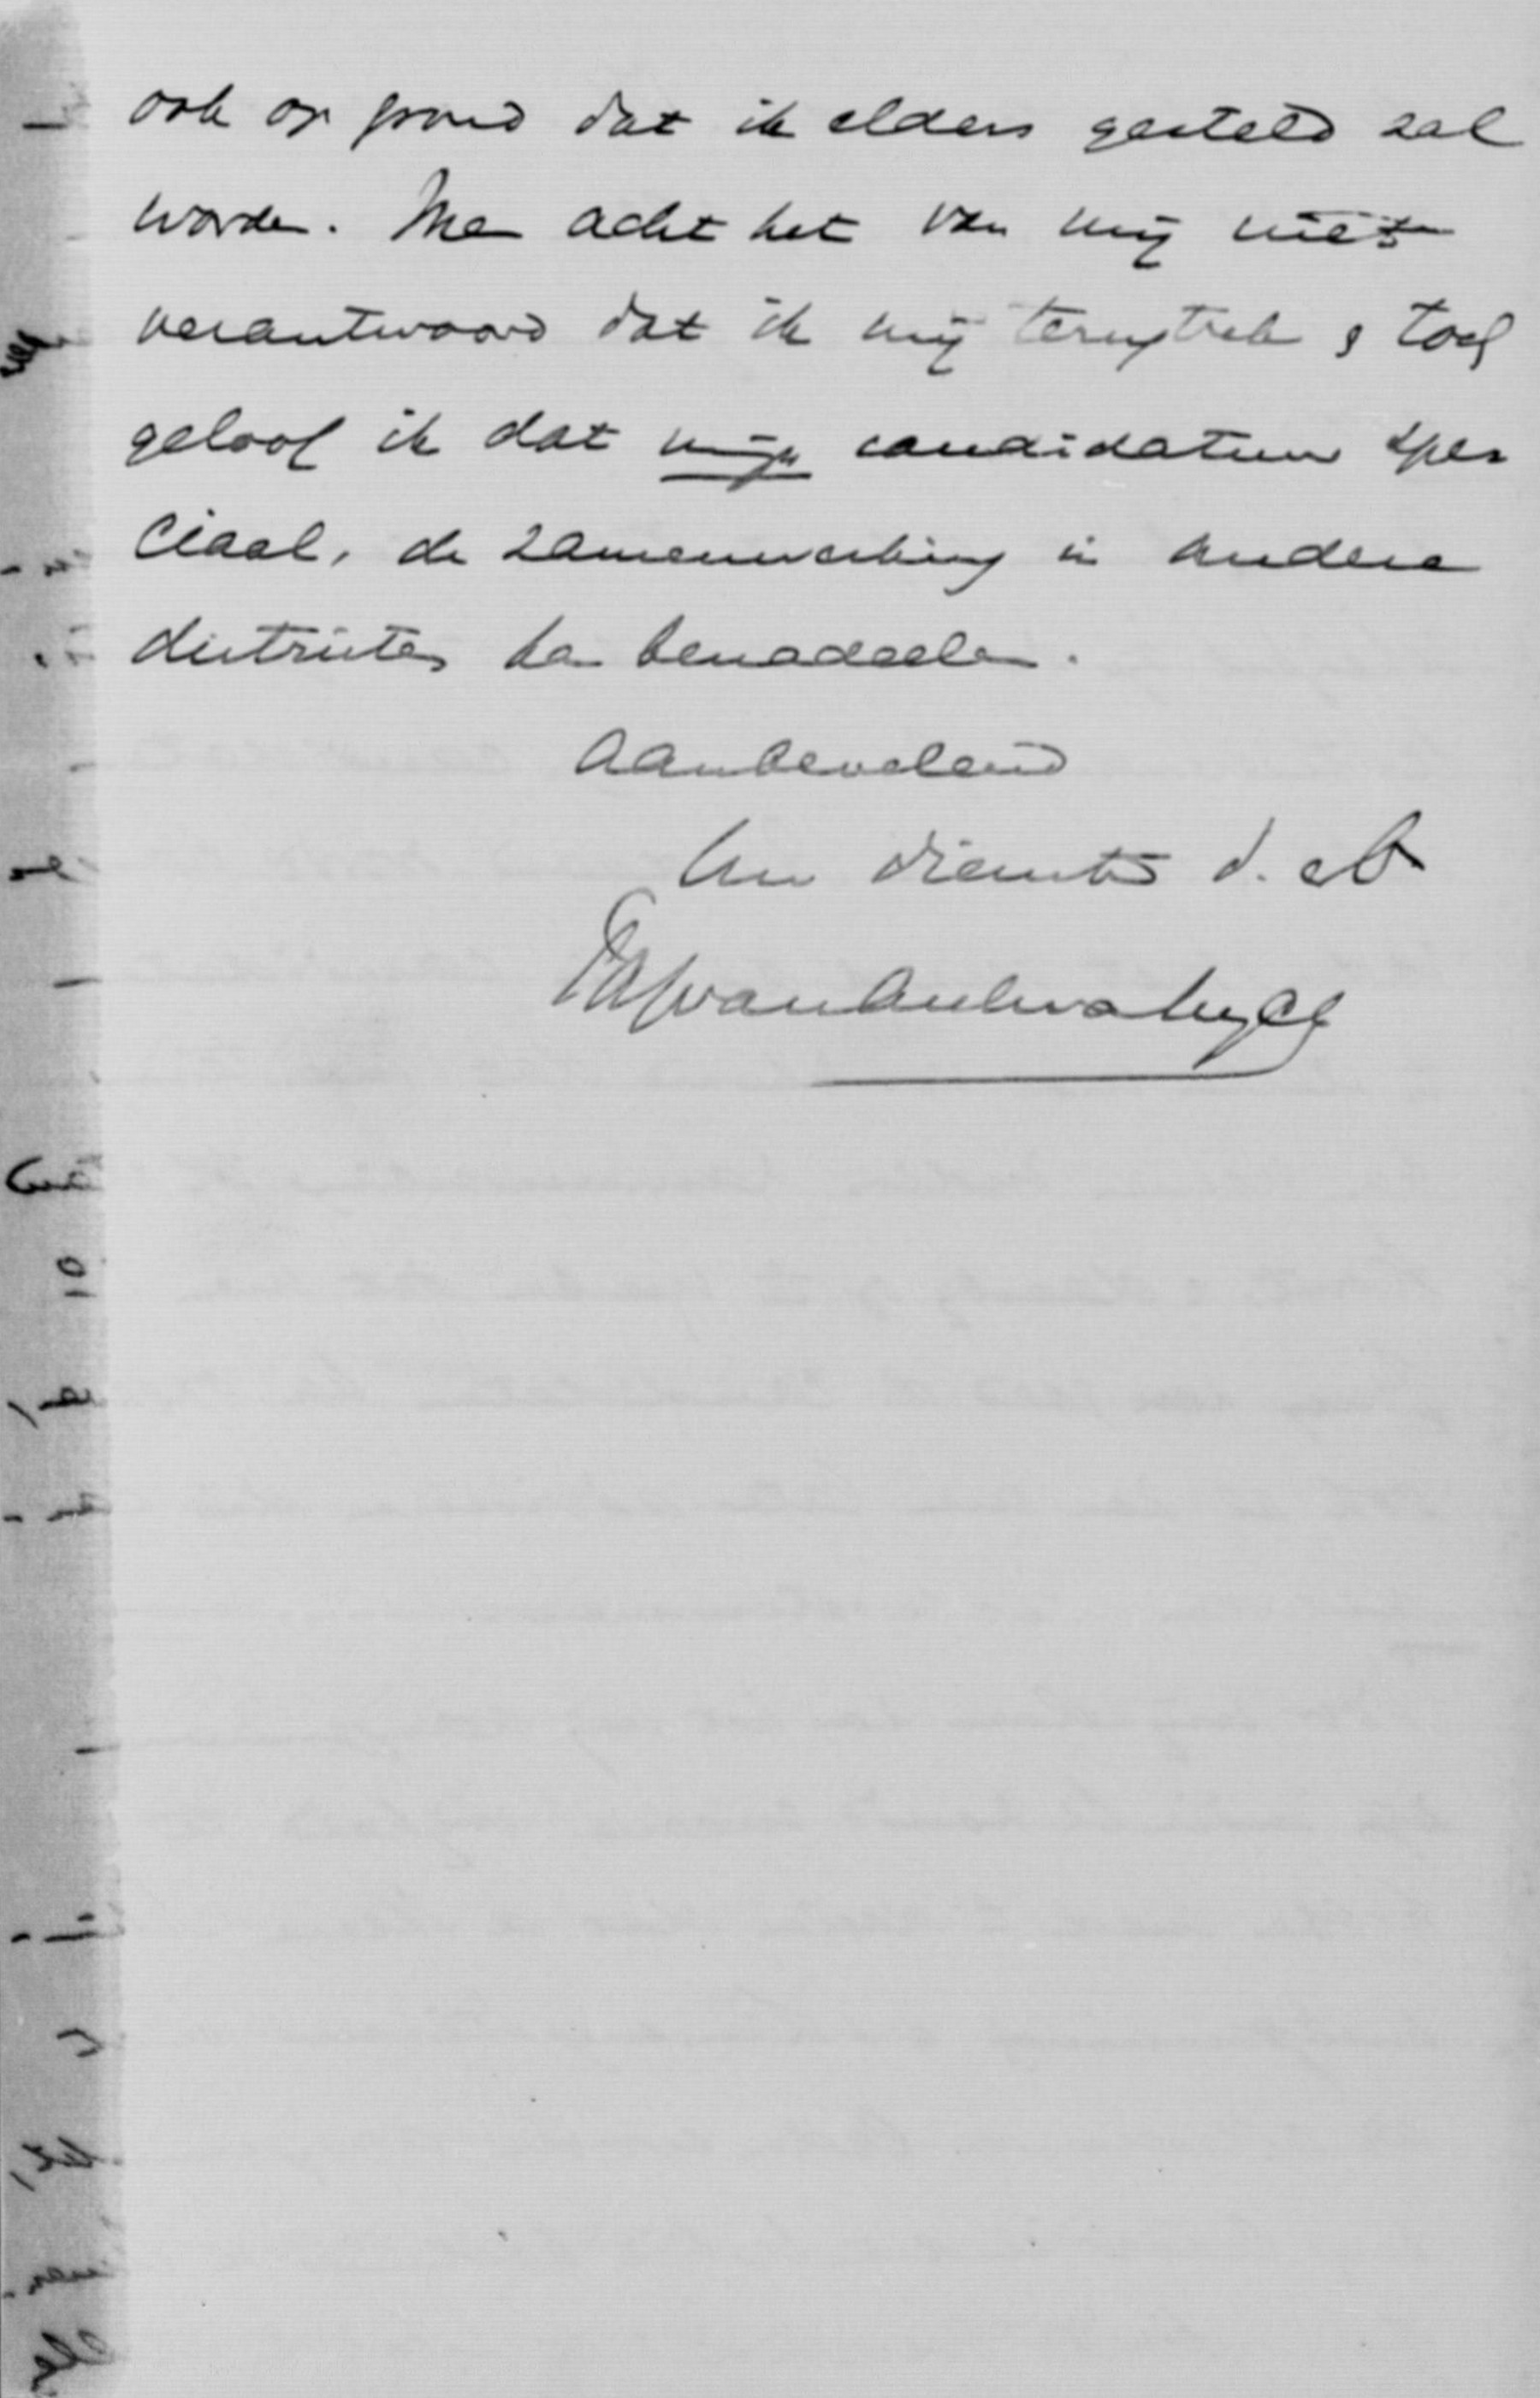 ook op grond dat ik elders gesteld zal
worden. Men acht het van mij niet
verantwoord dat ik mij terugtrek & toch
geloof ik dat mijn candidatuur spe
ciaal, de samenwerking in andere
districten kan benadeelen.
Aanbevelend
Uw dienstv. d.